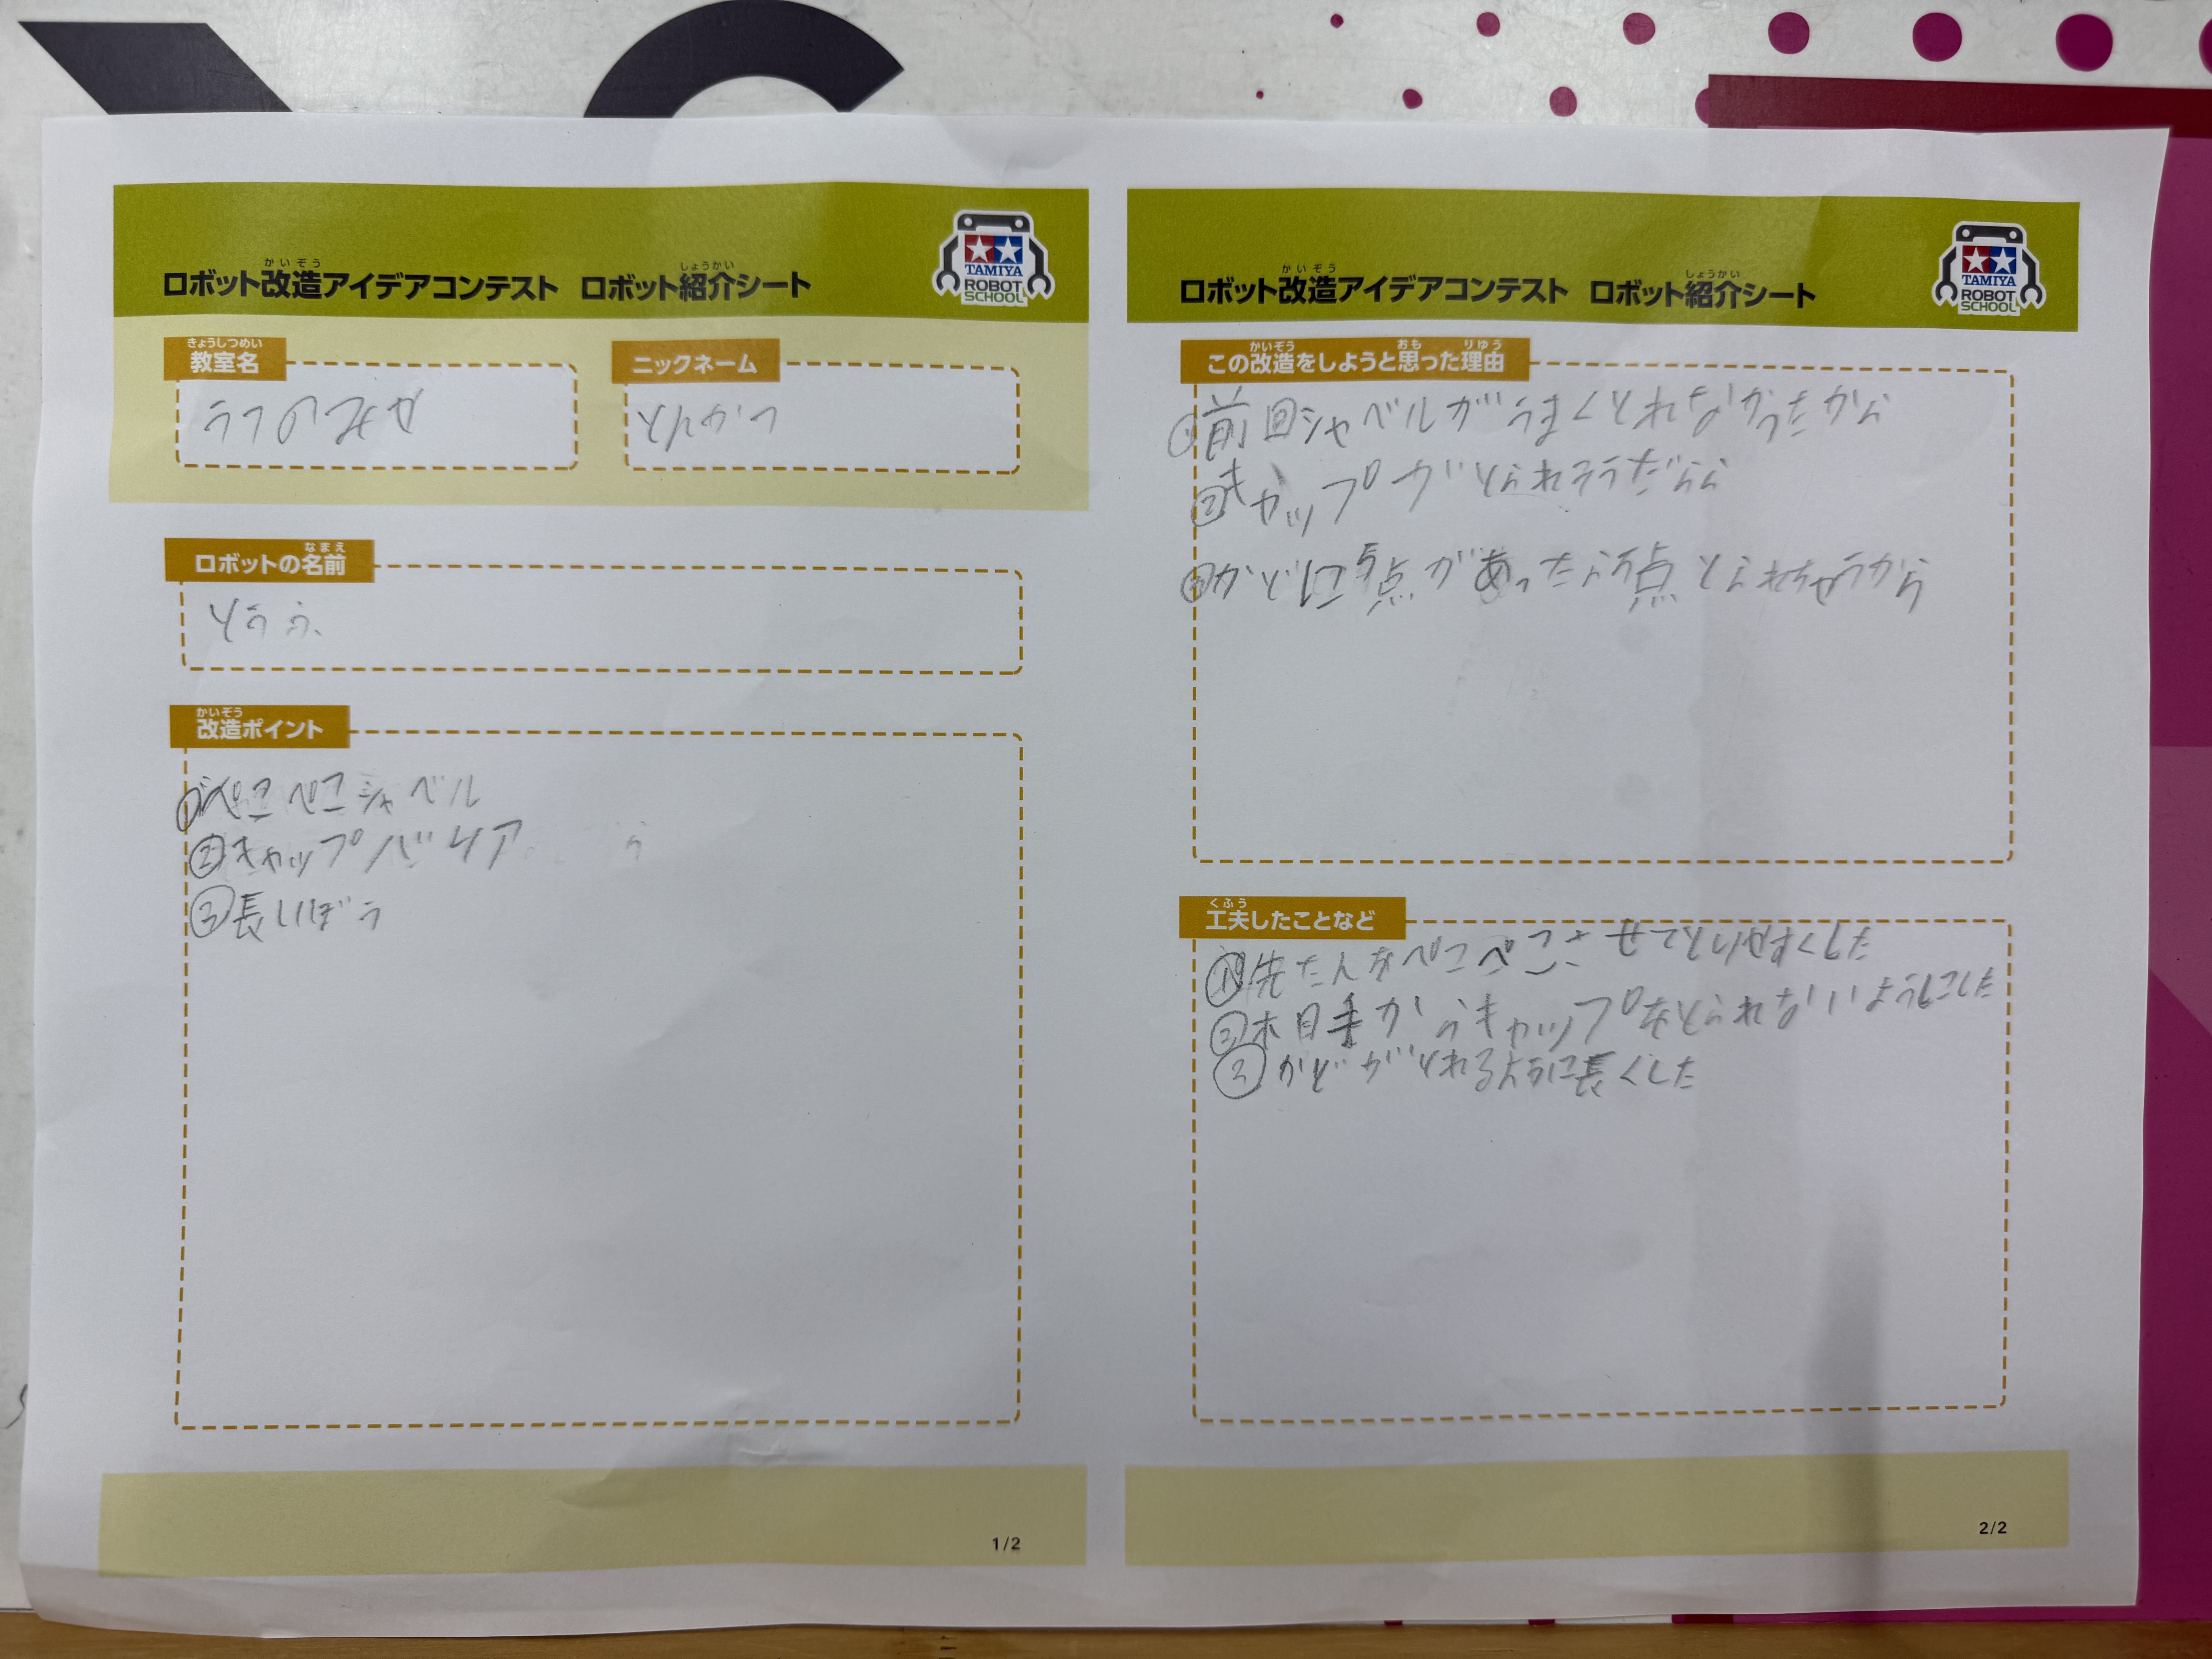 ロボット改造アイデアコンテスト ロボット紹介シート
かいぞう
しょうかい
TAMIYA
ROBOT
SCHOOL
きょうしつめい
教室名
ニックネーム
とんかつ
なまえ
ロボットの名前
かいぞう
改造ポイント
①ぺこぺこシャベル
②キャップバリア
③長いぼう
1/2
ロボット改造アイデアコンテスト ロボット紹介シート
かいぞう
しょうかい
TAMIYA
ROBOT
SCHOOL
かいぞう おも りゆう
この改造をしようと思った理由
①前回シャベルがうまくとれなかったから
②キャップがとられそうだから
かどに5点があったら5点とられちゃうから
くふう
工夫したことなど
①先たんをぺこぺこさせてとりやすくした
②相手からキャップをとられないようにした
③かどがとれるように長くした
2/2